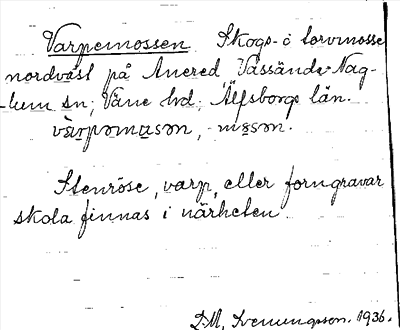 Varpemossen Skogs- o torvmosse
nordväst på Anered, Vassända-Nag-
-lum sn; Väne hd; Älfsborgs län.
vàrpəmɷsən, -mɷsən.
Stenröse, varp, eller forngravar
skola finnas i närheten.
D.M. Svenungsson. 1936.